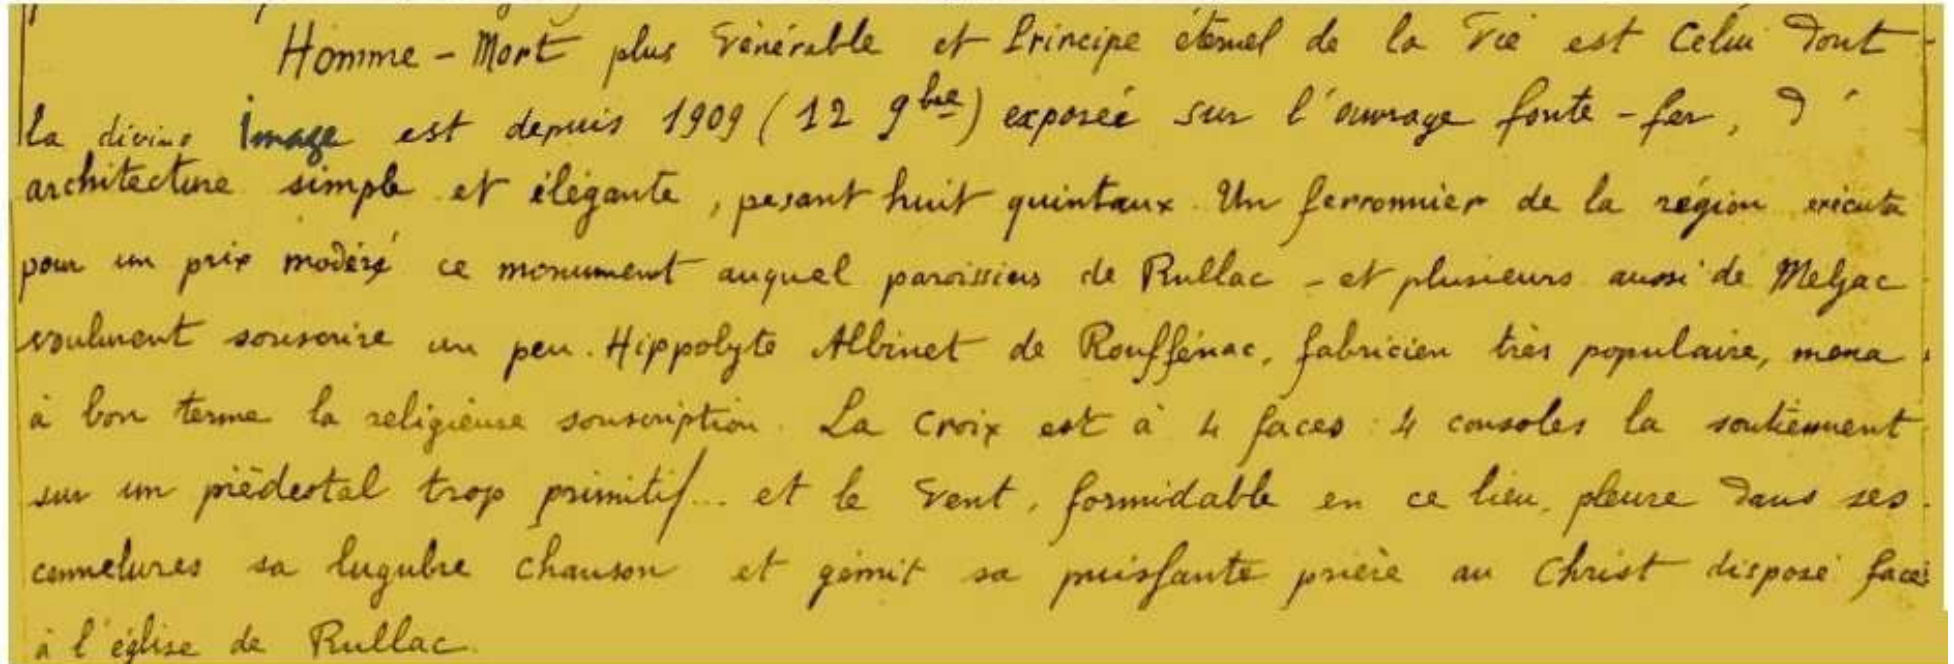 Homme - Mort plus Vénérable et Principe éternel de la Vie est Celui Dont
la divine Image est depuis 1909 (12 9bre) exposée sur l'ouvrage fonte - fer, D'
architecture simple et élégante, pesant huit quintaux. Un ferronnier de la région exécuta
pour un prix modéré ce monument auquel paroissiens de Rullac - et plusieurs aussi de Meljac
voulurent souscrire un peu. Hippolyte Albinet de Rouffénac, fabricien très populaire, mena
à bon terme la religieuse souscription. La Croix est à 4 faces : 4 consoles la soutiennent
sur un piédestal trop primitif... et le Vent, formidable en ce lieu, pleure Dans ses
cannelures sa lugubre chanson et gémit sa puissante prière au Christ disposé face
à l'église de Rullac.